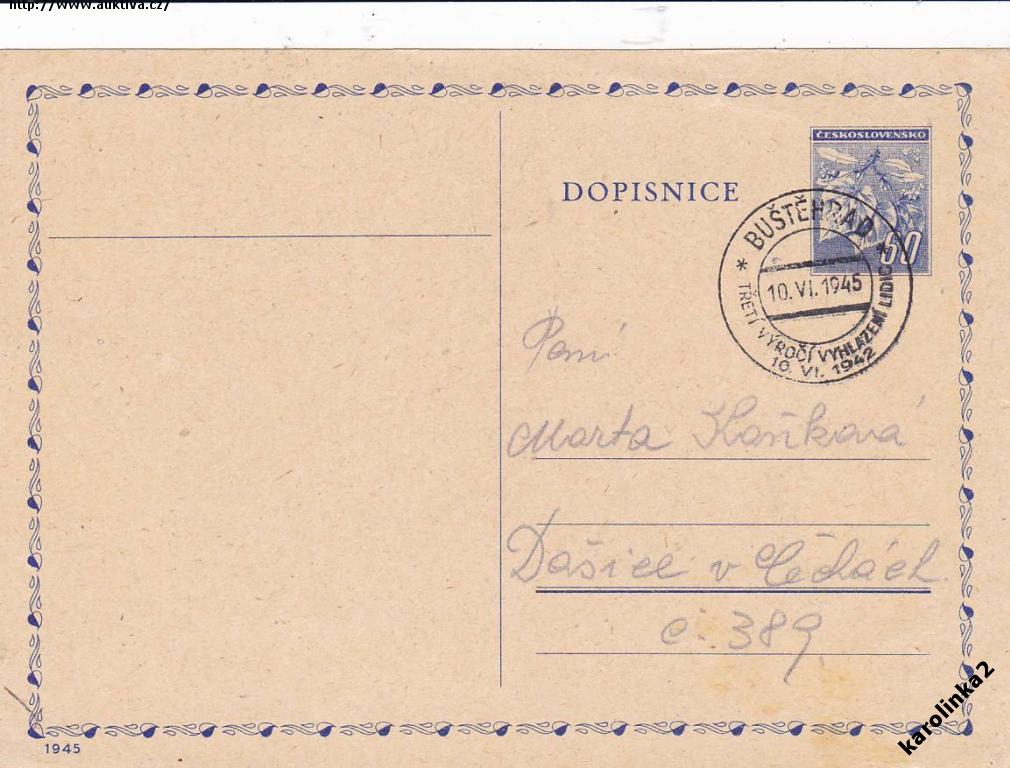 http://www.auktiva.cz/
ČESKOSLOVENSKO
60
DOPISNICE
* BUŠTĚHRAD *
10.VI.1945
TŘETÍ VÝROČÍ VYHLAZENÍ LIDIC
10. VI. 1942
Paní
Marta
Dašice v Čechách
č. 389
1945
karolinka2